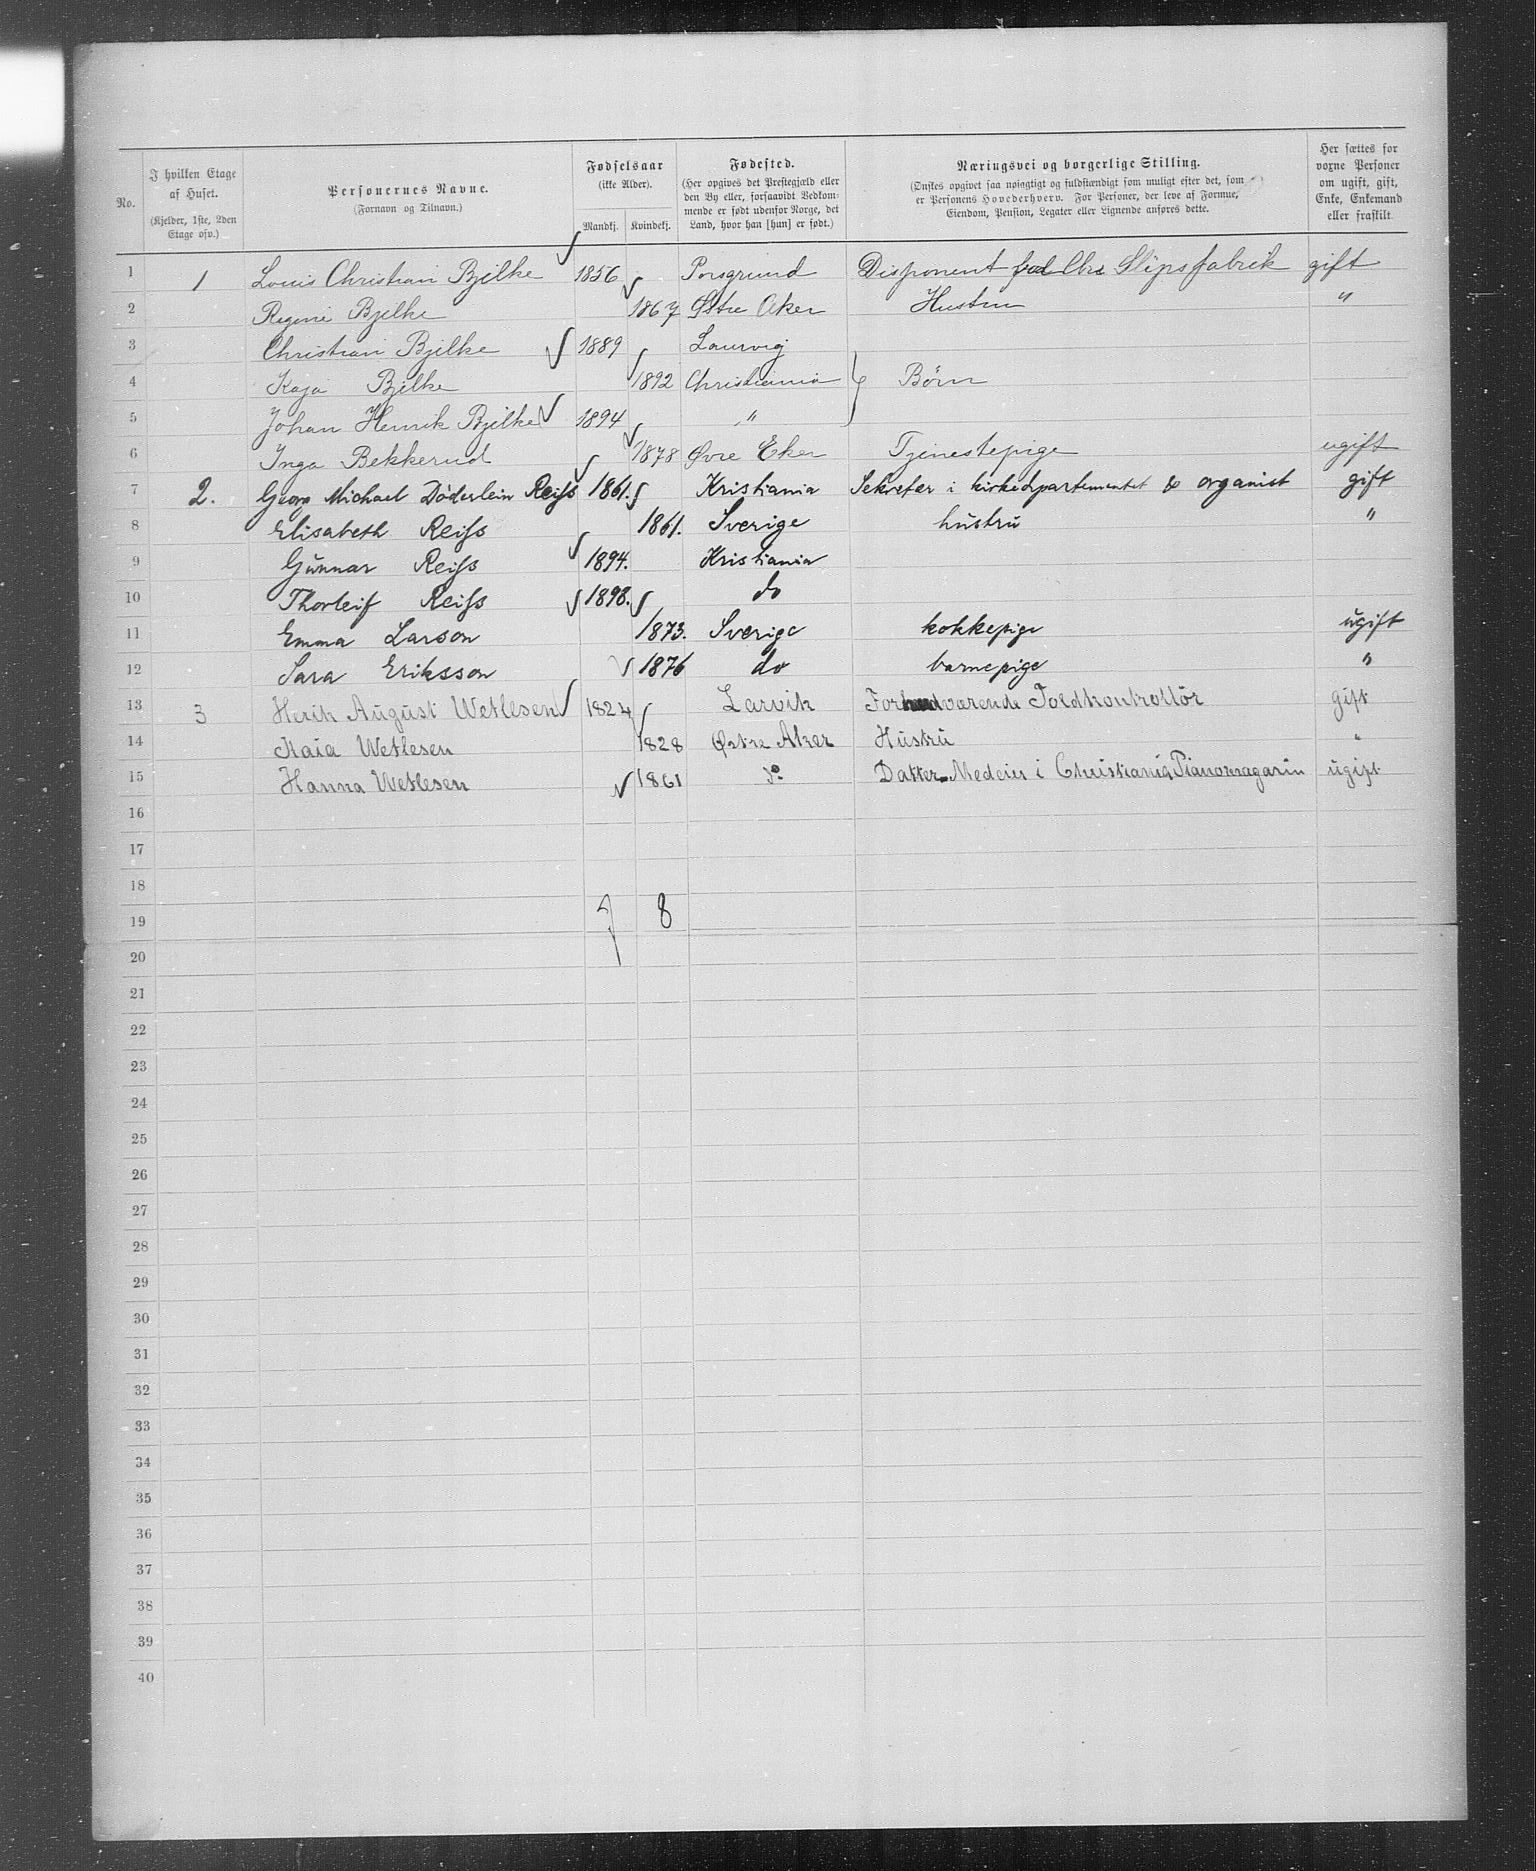 No.
I hvilken Etage af Huset.
(Kjelder, 1ste, 2den Etage osv.)
Personernes Navne.
(Fornavn og Tilnavn.)
Fødselsaar
(ikke Alder).
Mandkj. Kvindekj.
Fødested.
(Her opgives det Prestegjæld eller den By eller, forsaavidt Vedkommende er født udenfor Norge, det Land, hvor han [hun] er født.)
Næringsvei og borgerlige Stilling.
(Ønskes opgivet saa nøiagtigt og fuldstændigt som muligt efter det, som er Personens Hovederhverv. For Personer, der leve af Formue, Eiendom, Pension, Legater eller Lignende anføres dette.
Her sættes for voxne Personer om ugift, gift, Enke, Enkemand eller fraskilt.
1 1 Louis Christian Bjelke 1856 Porsgrund Disponent Chra Slipsfabrik gift
2 Regine Bjelke 1867 Østre Aker Hustru "
3 Christian Bjelke 1889 Laurvig
4 Kaja Bjelke 1892 Christiania } Børn
5 Johan Henrik Bjelke 1894 "
6 Inga Bekkerud 1878 Øvre Eker Tjenestepige ugift
7 2. Georg Michael Döderlein Reiss 1861. Kristiania Sekretær i kirkedepartementet & organist gift
8 Elisabeth Reiss 1861. Sverige hustru "
9 Gunnar Reiss 1894. Kristiania
10 Thorleif Reiss 1898. do
11 Emma Larson 1873. Sverige kokkepige ugift
12 Sara Eriksson 1876 do barnepige "
13 3 Henrik August Wetlesen 1824 Larvik Forhenværende Toldkontrollör gift
14 Maia Wetlesen 1828 Østre Aker Hustru "
15 Hanna Wetlesen 1861 do Datter Medeier i Christiania Pianomagasin ugift
16
17
18
19 7 8
20
21
22
23
24
25
26
27
28
29
30
31
32
33
34
35
36
37
38
39
40